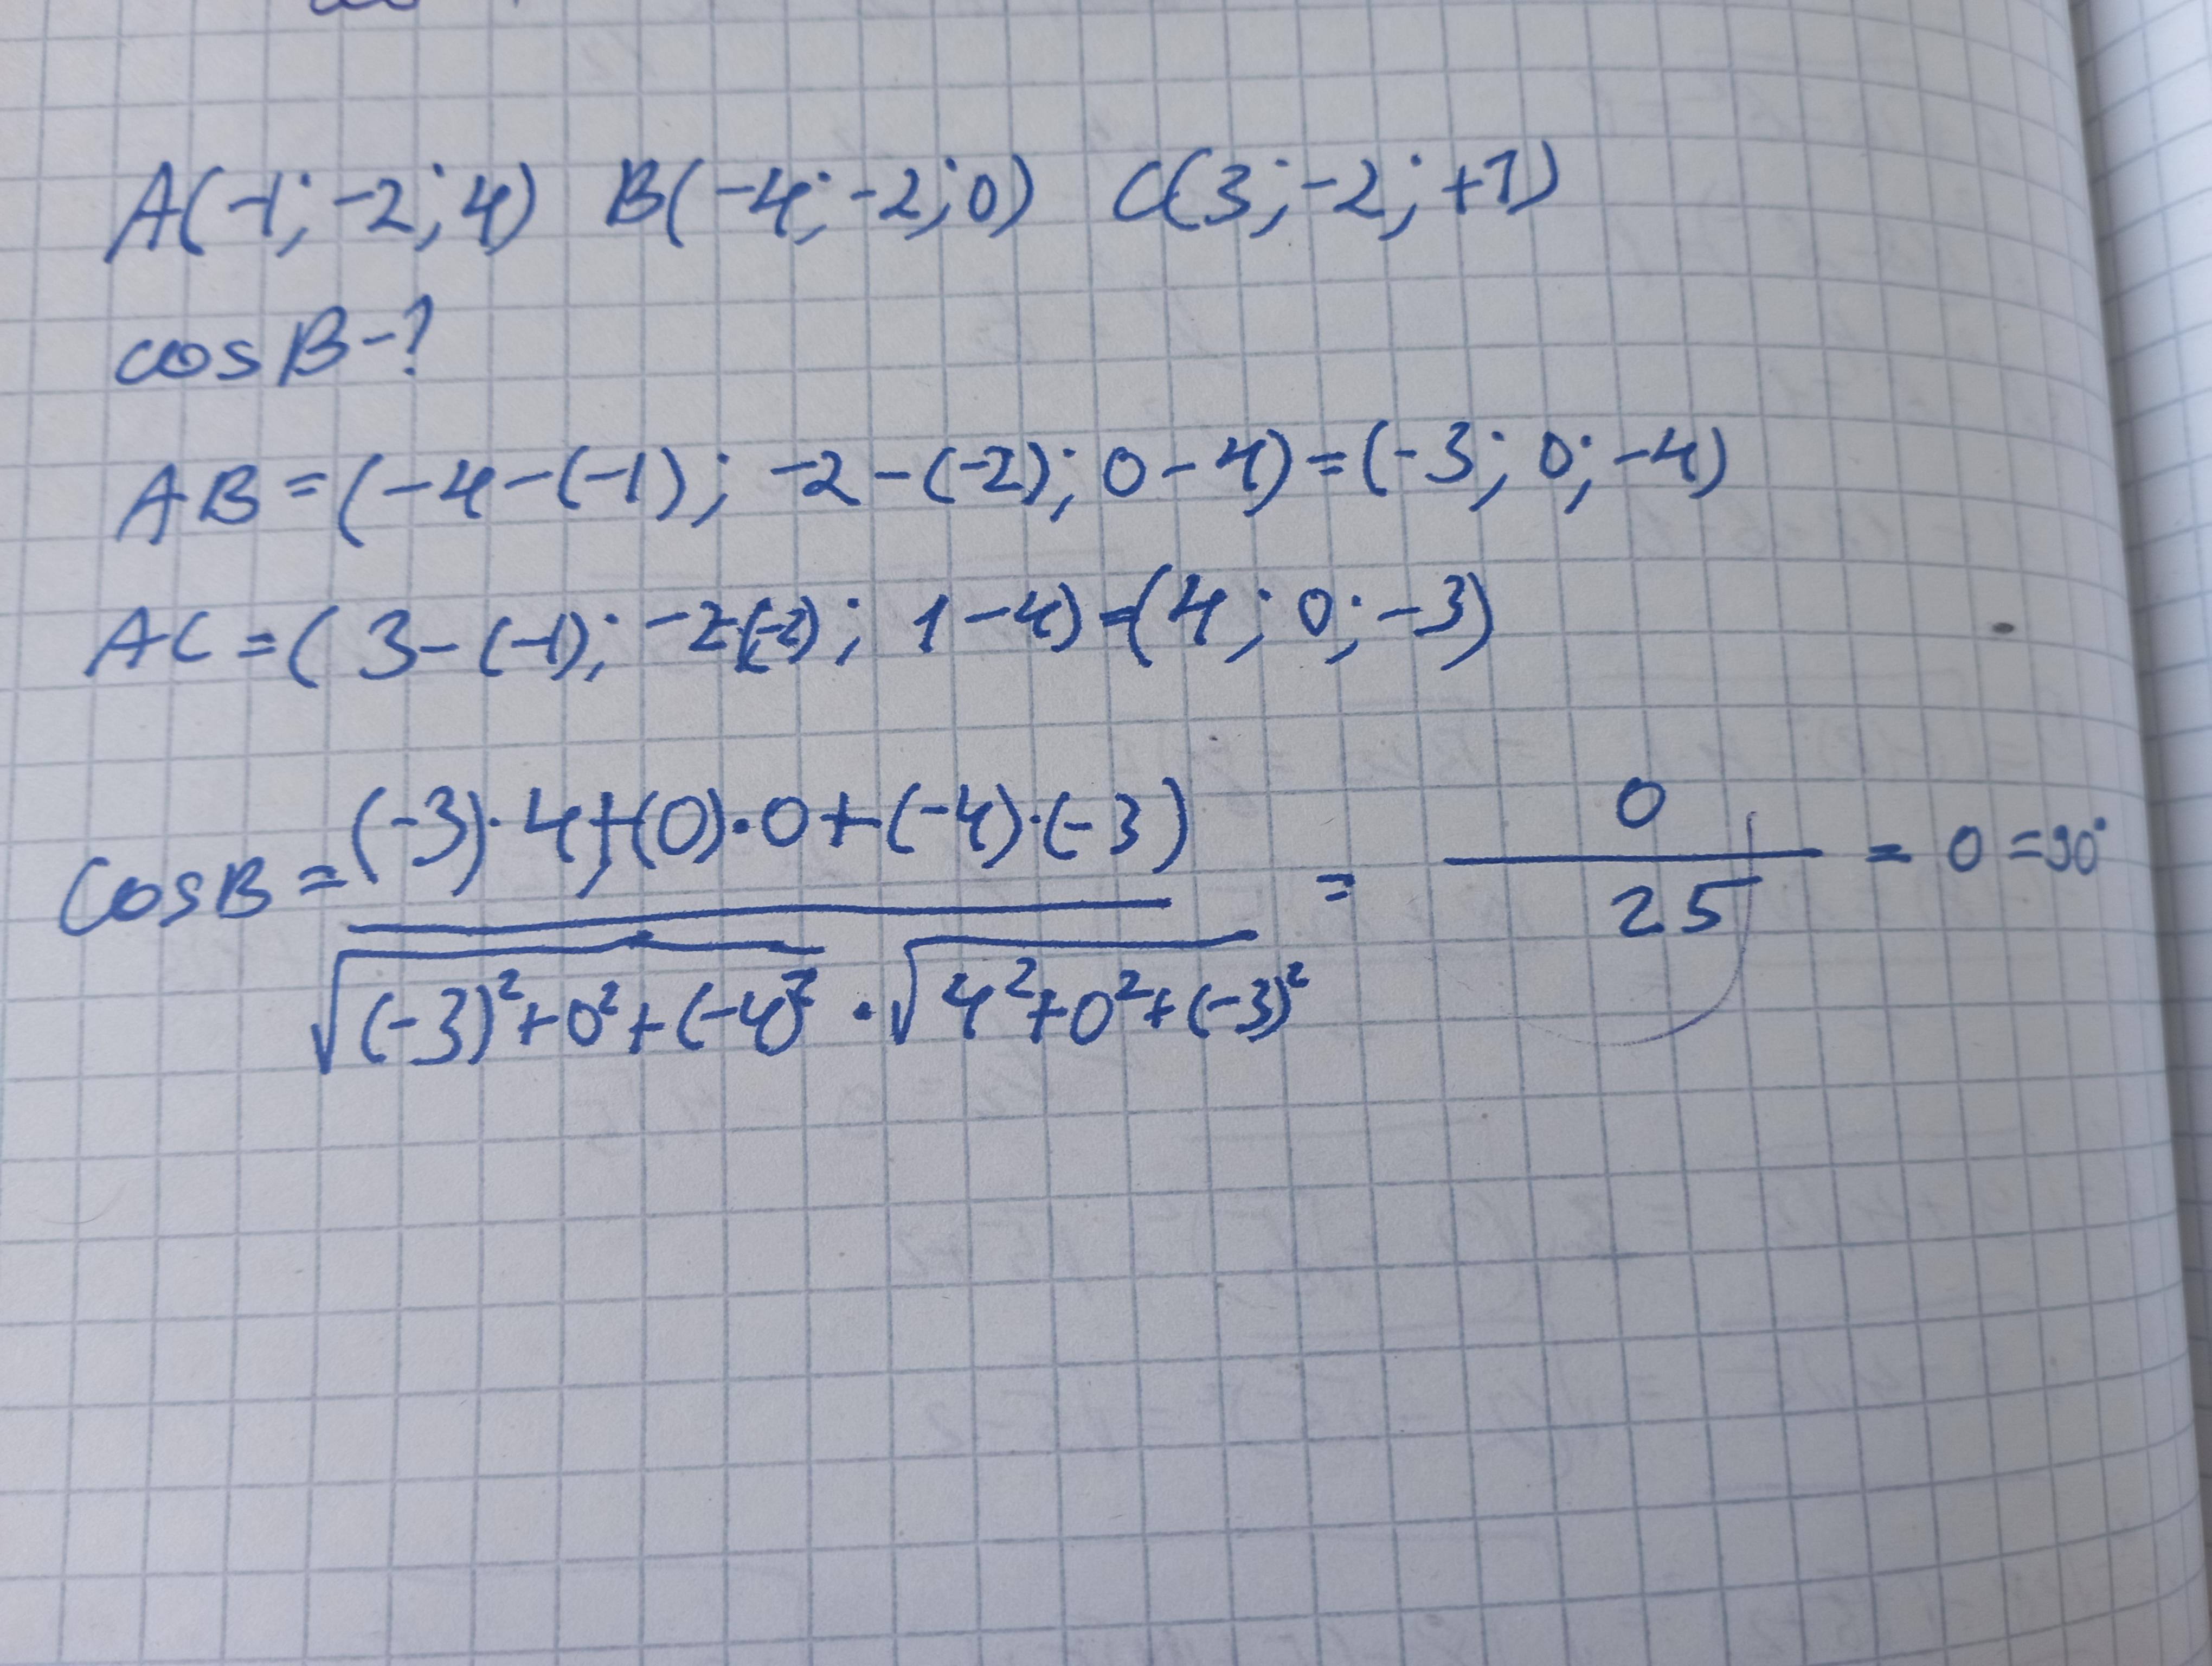 A(-1; -2; 4) B(-4; -2; 0) C(3; -2; +1)
cos B-?
AB = (-4-(-1); -2-(-2); 0-4) = (-3; 0; -4)
AC = (3-(-1); -2-(-2); 1-4) = (4; 0; -3)
cos B = (-3)·4+(0)·0+(-4)·(-3) / √(-3)²+0²+(-4)² · √4²+0²+(-3)² = 0 / 25 = 0 = 90°